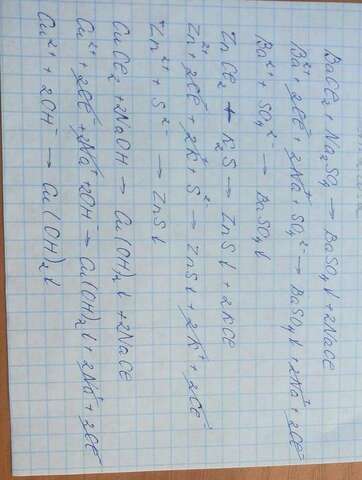 BaCl₂ + Na₂SO₄ → BaSO₄↓ + 2NaCl
Ba²⁺ + 2Cl⁻ + 2Na⁺ + SO₄²⁻ → BaSO₄↓ + 2Na⁺ + 2Cl⁻
Ba²⁺ + SO₄²⁻ → BaSO₄↓
ZnCl₂ + K₂S → ZnS↓ + 2KCl
Zn²⁺ + 2Cl⁻ + 2K⁺ + S²⁻ → ZnS↓ + 2K⁺ + 2Cl⁻
Zn²⁺ + S²⁻ → ZnS↓
CuCl₂ + 2NaOH → Cu(OH)₂↓ + 2NaCl
Cu²⁺ + 2Cl⁻ + 2Na⁺ + 2OH⁻ → Cu(OH)₂↓ + 2Na⁺ + 2Cl⁻
Cu²⁺ + 2OH⁻ → Cu(OH)₂↓